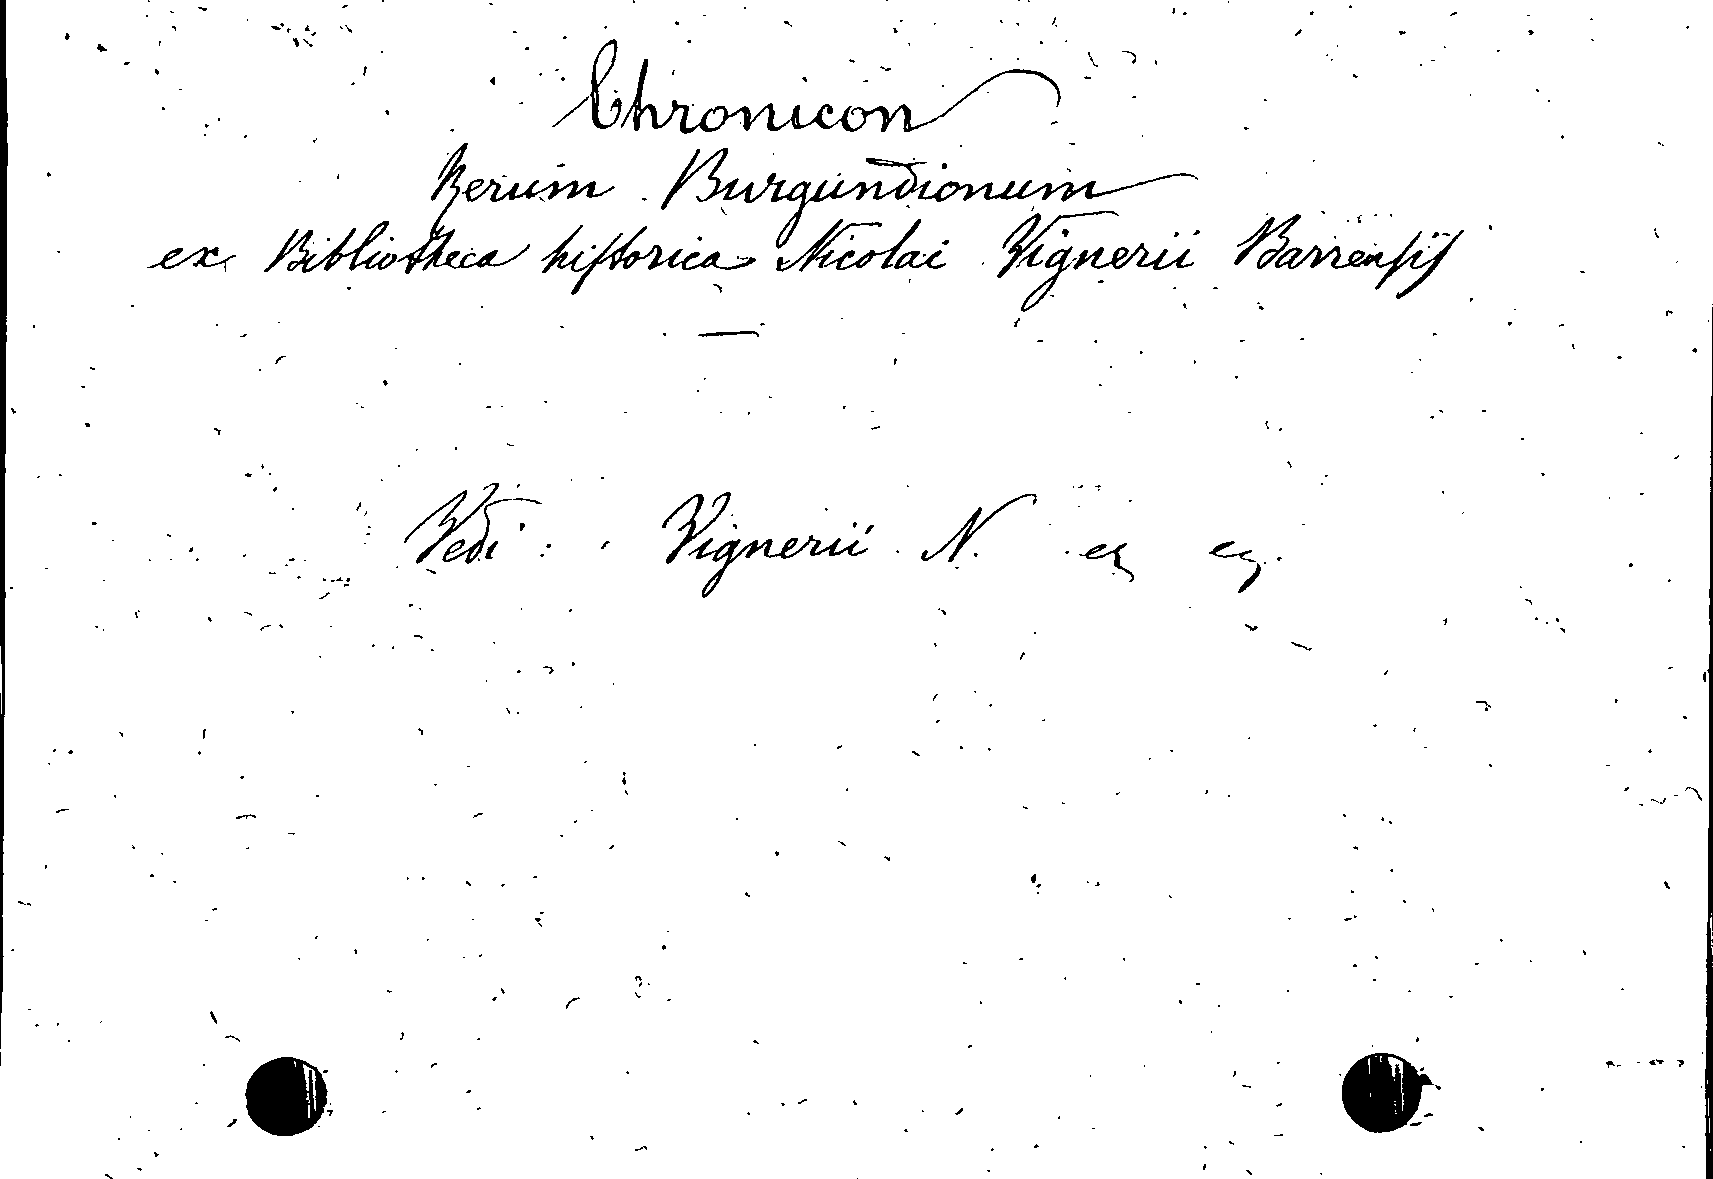 Chronicon
Rerum Burgundionum
ex Bibliotheca historica Nicolai Vignerii Barrensis
Vedi: Vignerii N.